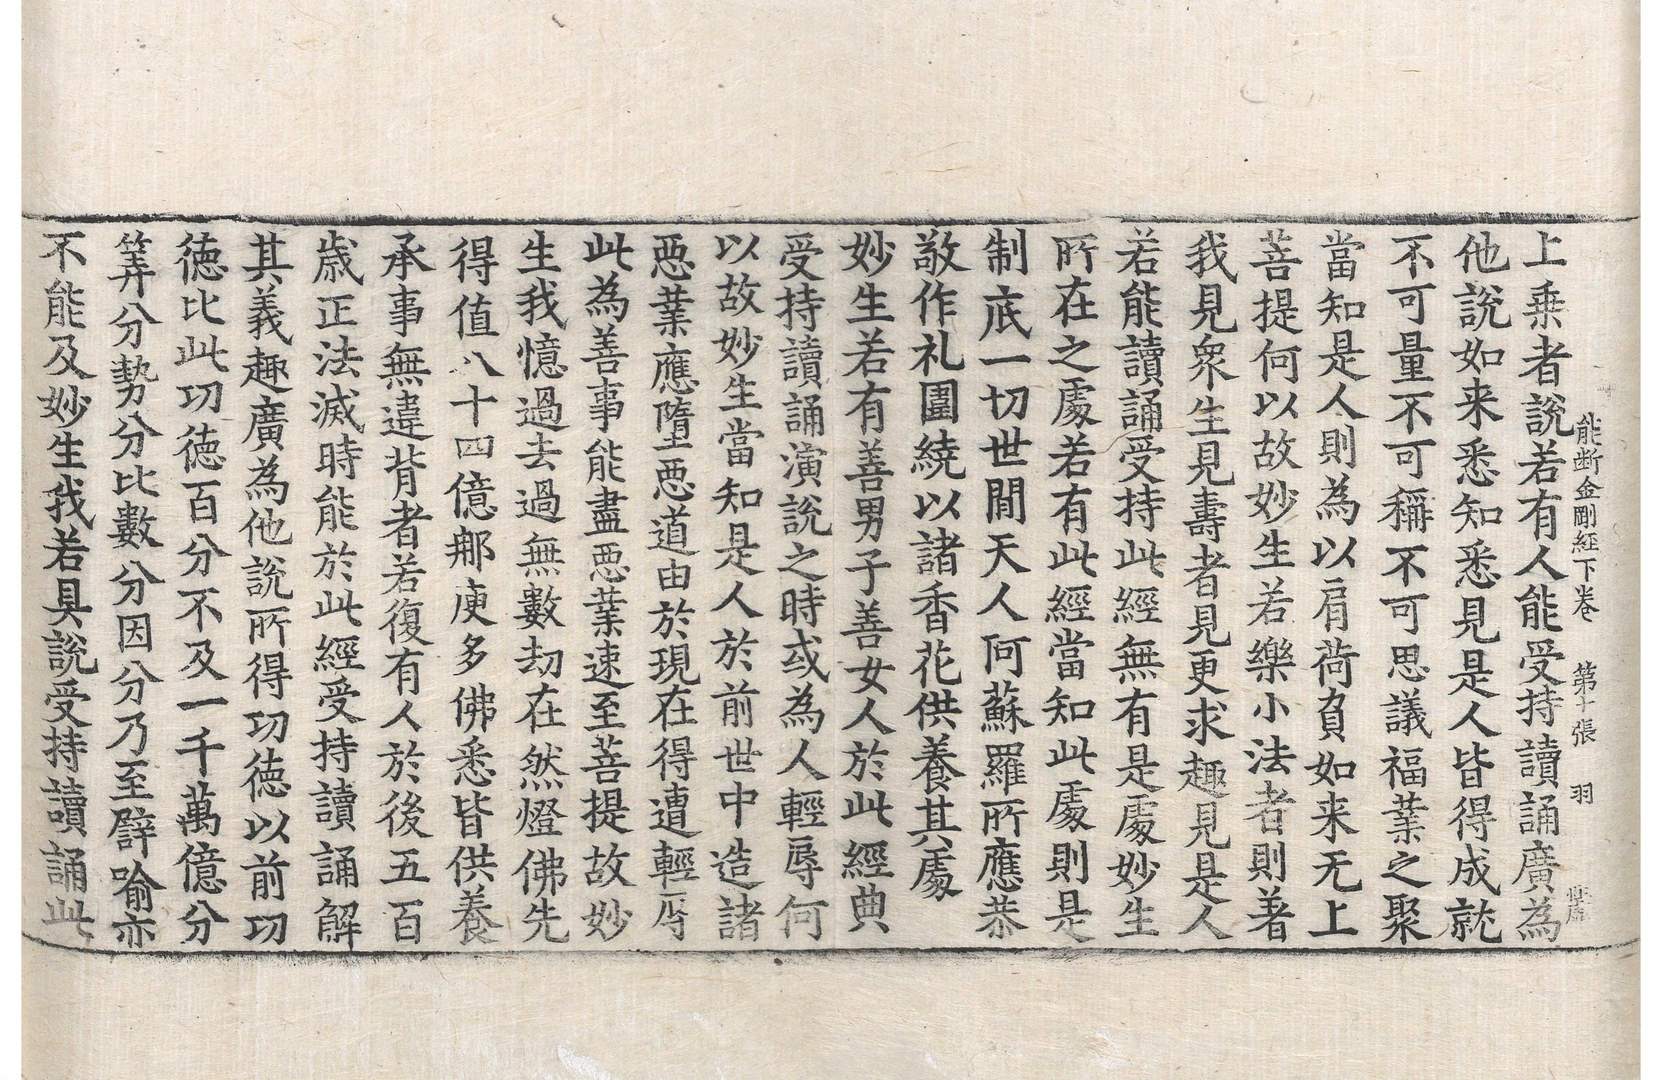 能断金剛経下卷　第十張　羽
上乗者說若有人能受持讀誦廣為
他說如来悉知悉見是人皆得成就
不可量不可稱不可思議福業之聚
當知是人則為以肩荷負如来无上
菩提何以故妙生若樂小法者則著
我見衆生見壽者見更求趣見是人
若能讀誦受持此經無有是處妙生
所在之處若有此經當知此處則是
制底一切世間天人阿蘇羅所應恭
敬作礼圍繞以諸香花供養其處
妙生若有善男子善女人於此經典
受持讀誦演說之時或為人輕辱何
以故妙生當知是人於前世中造諸
悪業應墮悪道由於現在得遭輕辱
此為善事能盡悪業速至菩提故妙
生我憶過去過無數劫在然燈佛先
得值八十四億那庾多佛悉皆供養
承事無違背者若復有人於後五百
歳正法滅時能於此經受持讀誦解
其義趣廣為他說所得功徳以前功
徳比此功徳百分不及一千萬億分
筭分勢分比數分因分乃至譬喻亦
不能及妙生我若具說受持讀誦此